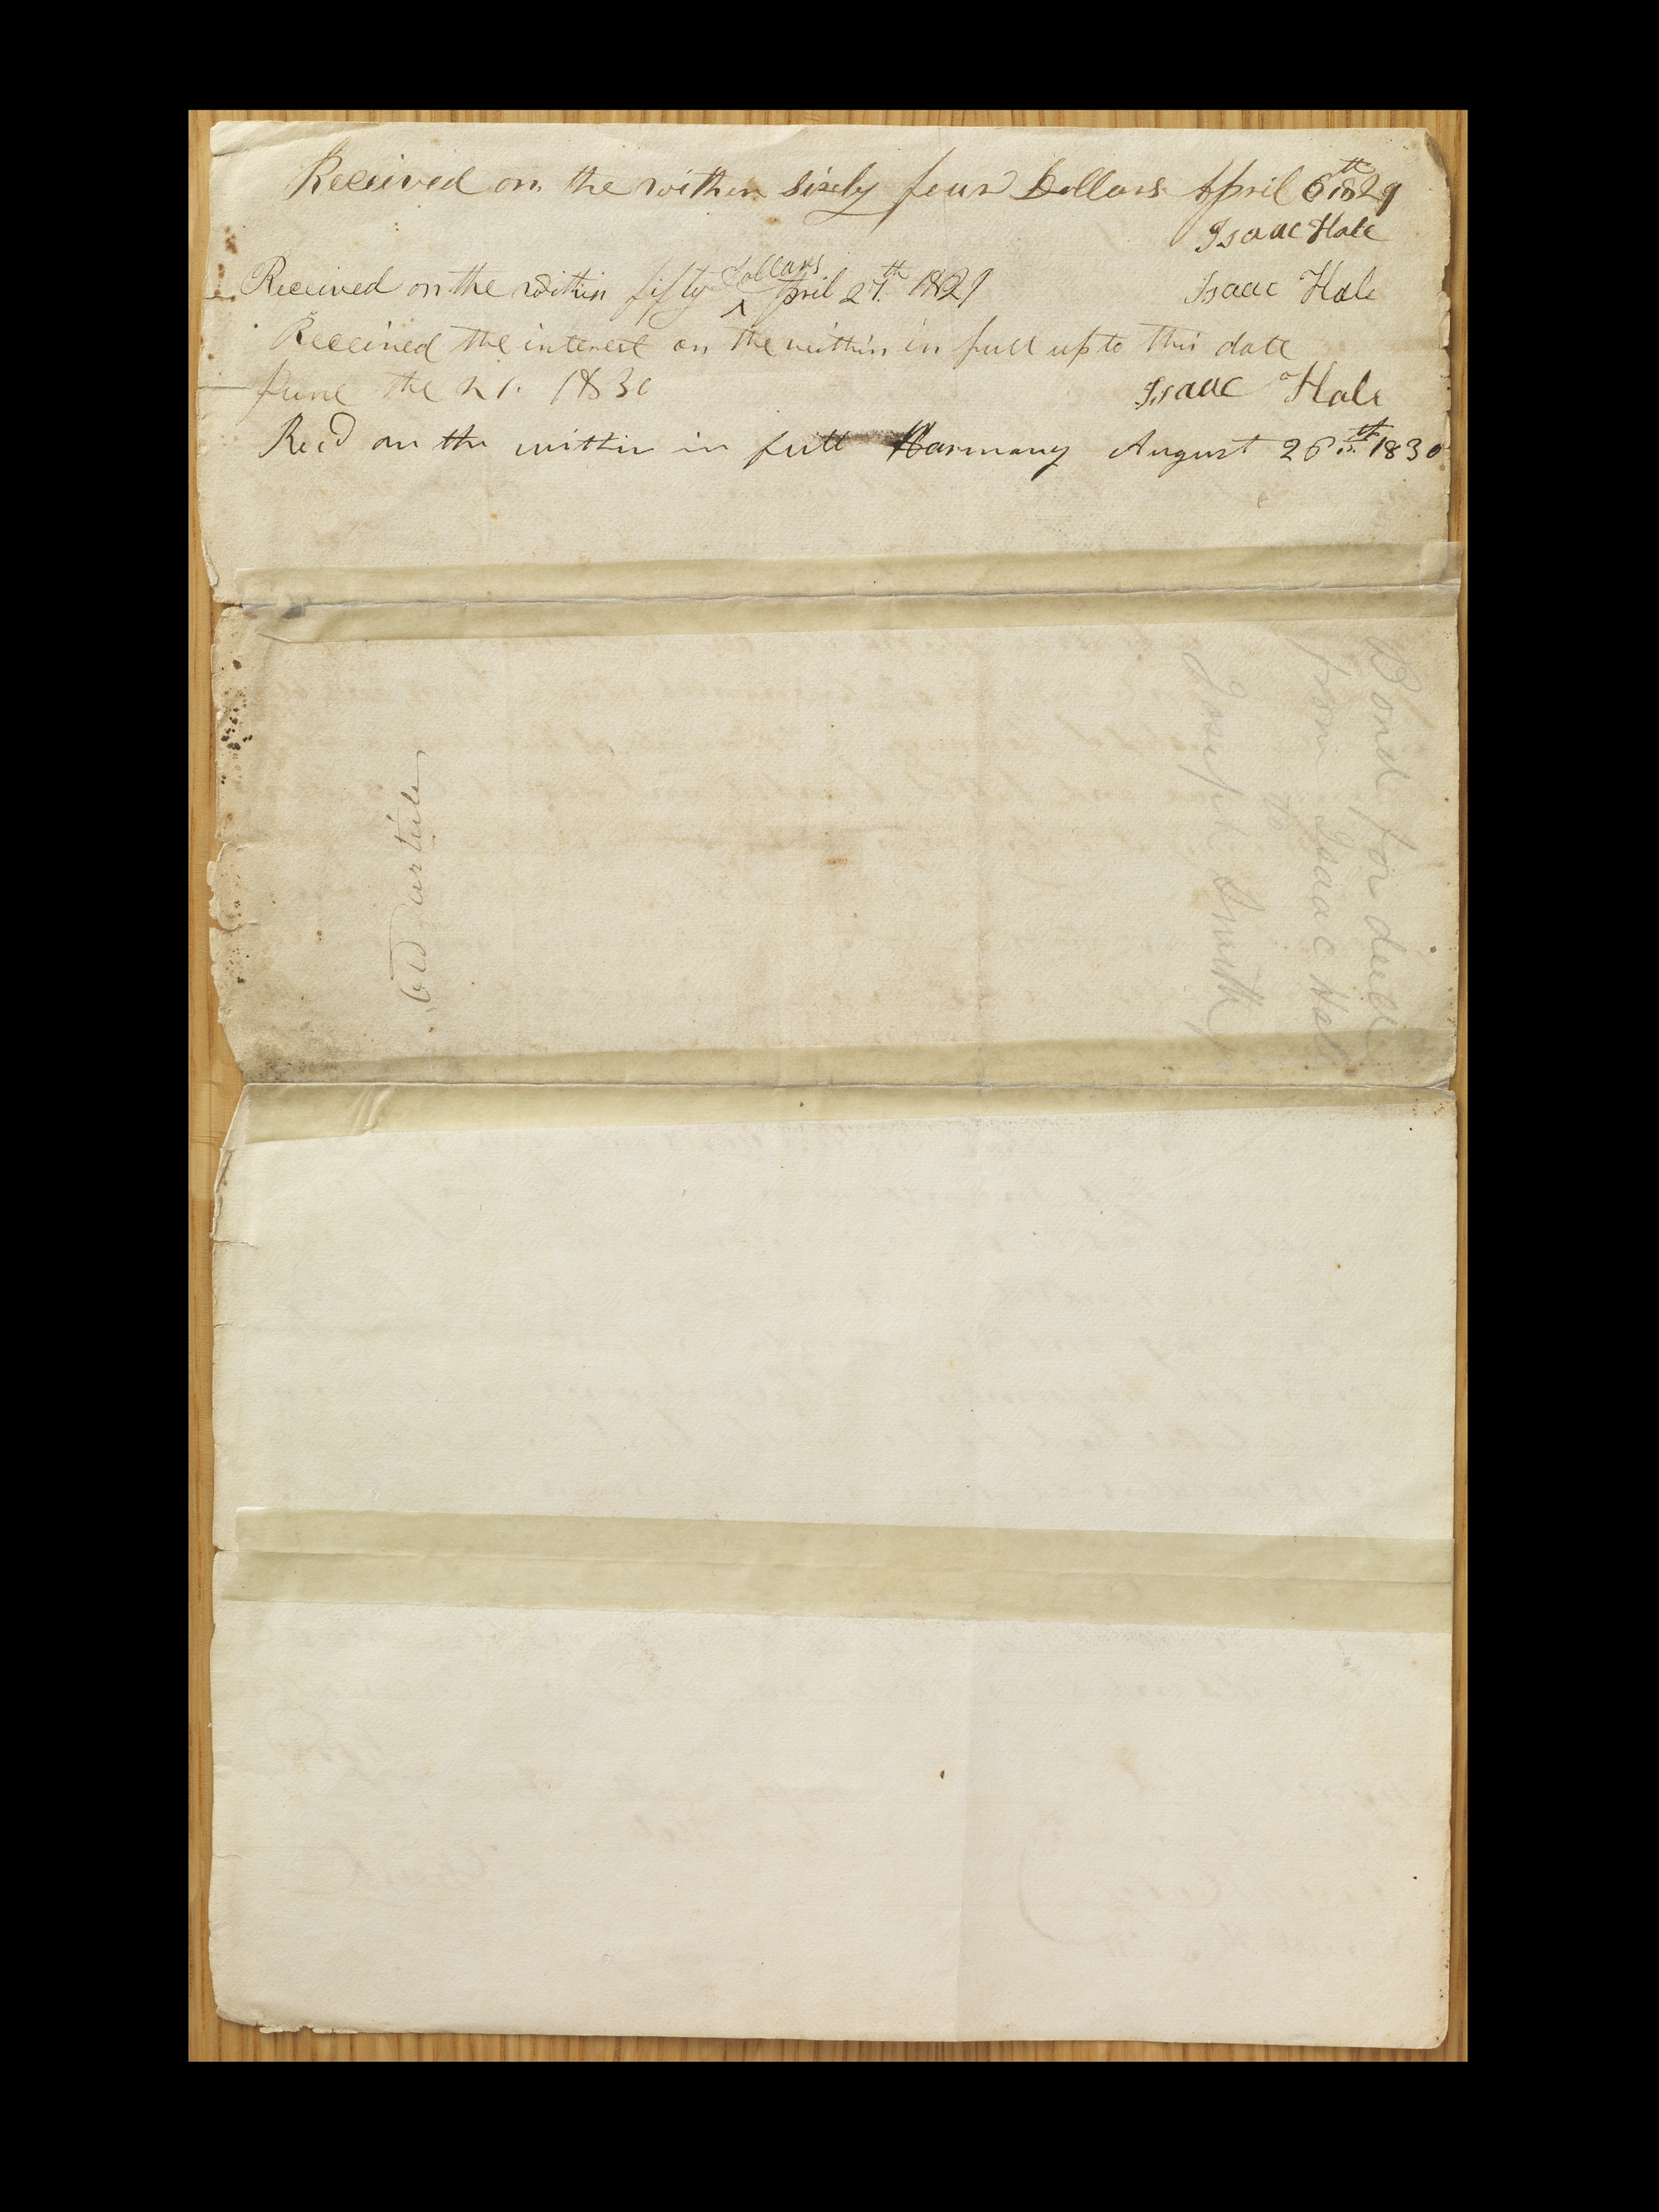 Received on the within sixty four Dollars April 6th 1829
Isaac Hale
Received on the within fifty dollars April 27th 1829 Isaac Hale
Received the interest on the within in full up to this date
June the 21. 1830 Isaac Hale
Recd on the within in full Harmany August 26th 1830
Bond for deed
from Isaac Hale
to
Joseph Smith
Old article